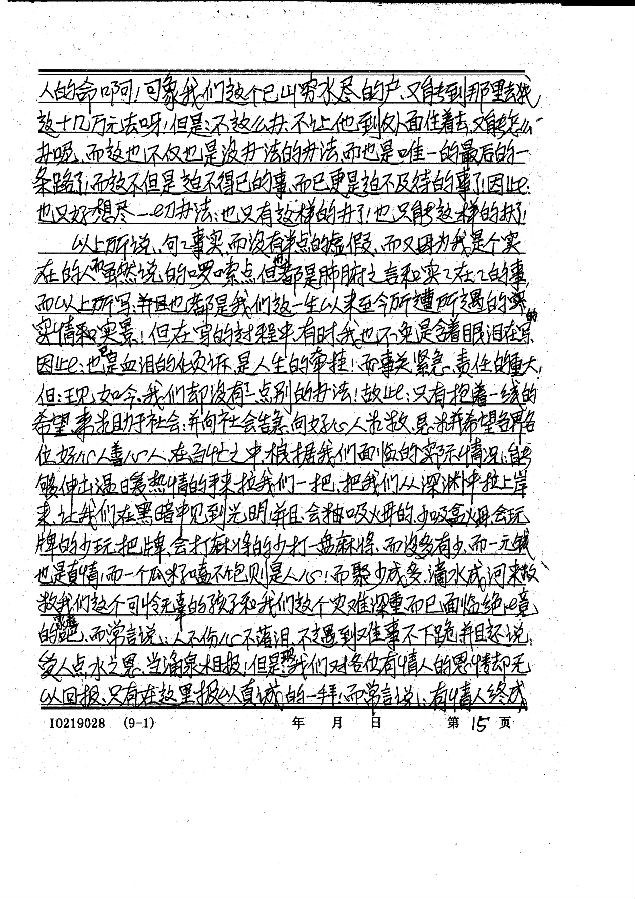 人的命啊!可象我们这个已山穷水尽的户、又能到那里去找
这十几万元法呀!但是:不这么办、不让他到外面住着去、又能怎么
办呢、而这也不仅也是没办法的办法、而也是唯一的最后的一
条路了!而这不但是迫不得已的事、而已更是迫不及待的事了!因此:
也又好想尽一切办法:也又有这样的办了!也只能这样的办了!
以上所说、句句事实、而没有半点的虚假、而又因为我是个实
在的人、虽然说的啰嗦点、但都是肺腑之言和实实在在的事、
而以上所写、并且也都是我们这一生以来至今所遭所遇的
实情和实景!但在写的过程中、有时我也不免是含着眼泪在写
因此:也是血泪的倾诉、是人生的牵挂!而事关紧急、责任的重大!
但:现如今、我们却没有一点别的办法!故此:只有抱着一线的
希望、来求助于社会:并向社会告急、向好心人求救、恳求并希望各界各
位好心人善心人、在百忙之中、根据我们面临的实际情况:能
够伸出温暖热情的手来拉我们一把、把我们从深渊中拉上岸
来、让我们在黑暗中见到光明、并且、会抽吸烟的、少吸盒烟、会玩
牌的少玩把牌、会打麻将的少打一盘麻将、而没多有少、而一元钱
也是真情!而一个瓜籽嗑不饱则是人心!而聚少成多、滴水成河来救
救我们这个可怜无辜的孩子和我们这个灾难深重而已面临绝境
的、而常言说:人不伤心不落泪、不遇到难事不下跪、并且还说:
受人点水之恩、当涌泉相报、但是我们对各位有情人的恩情却无
以回报、只有在这里报以真诚的一拜!而常言说:有情人终成
10219028 (9-1) 年 月 日 第 15 页